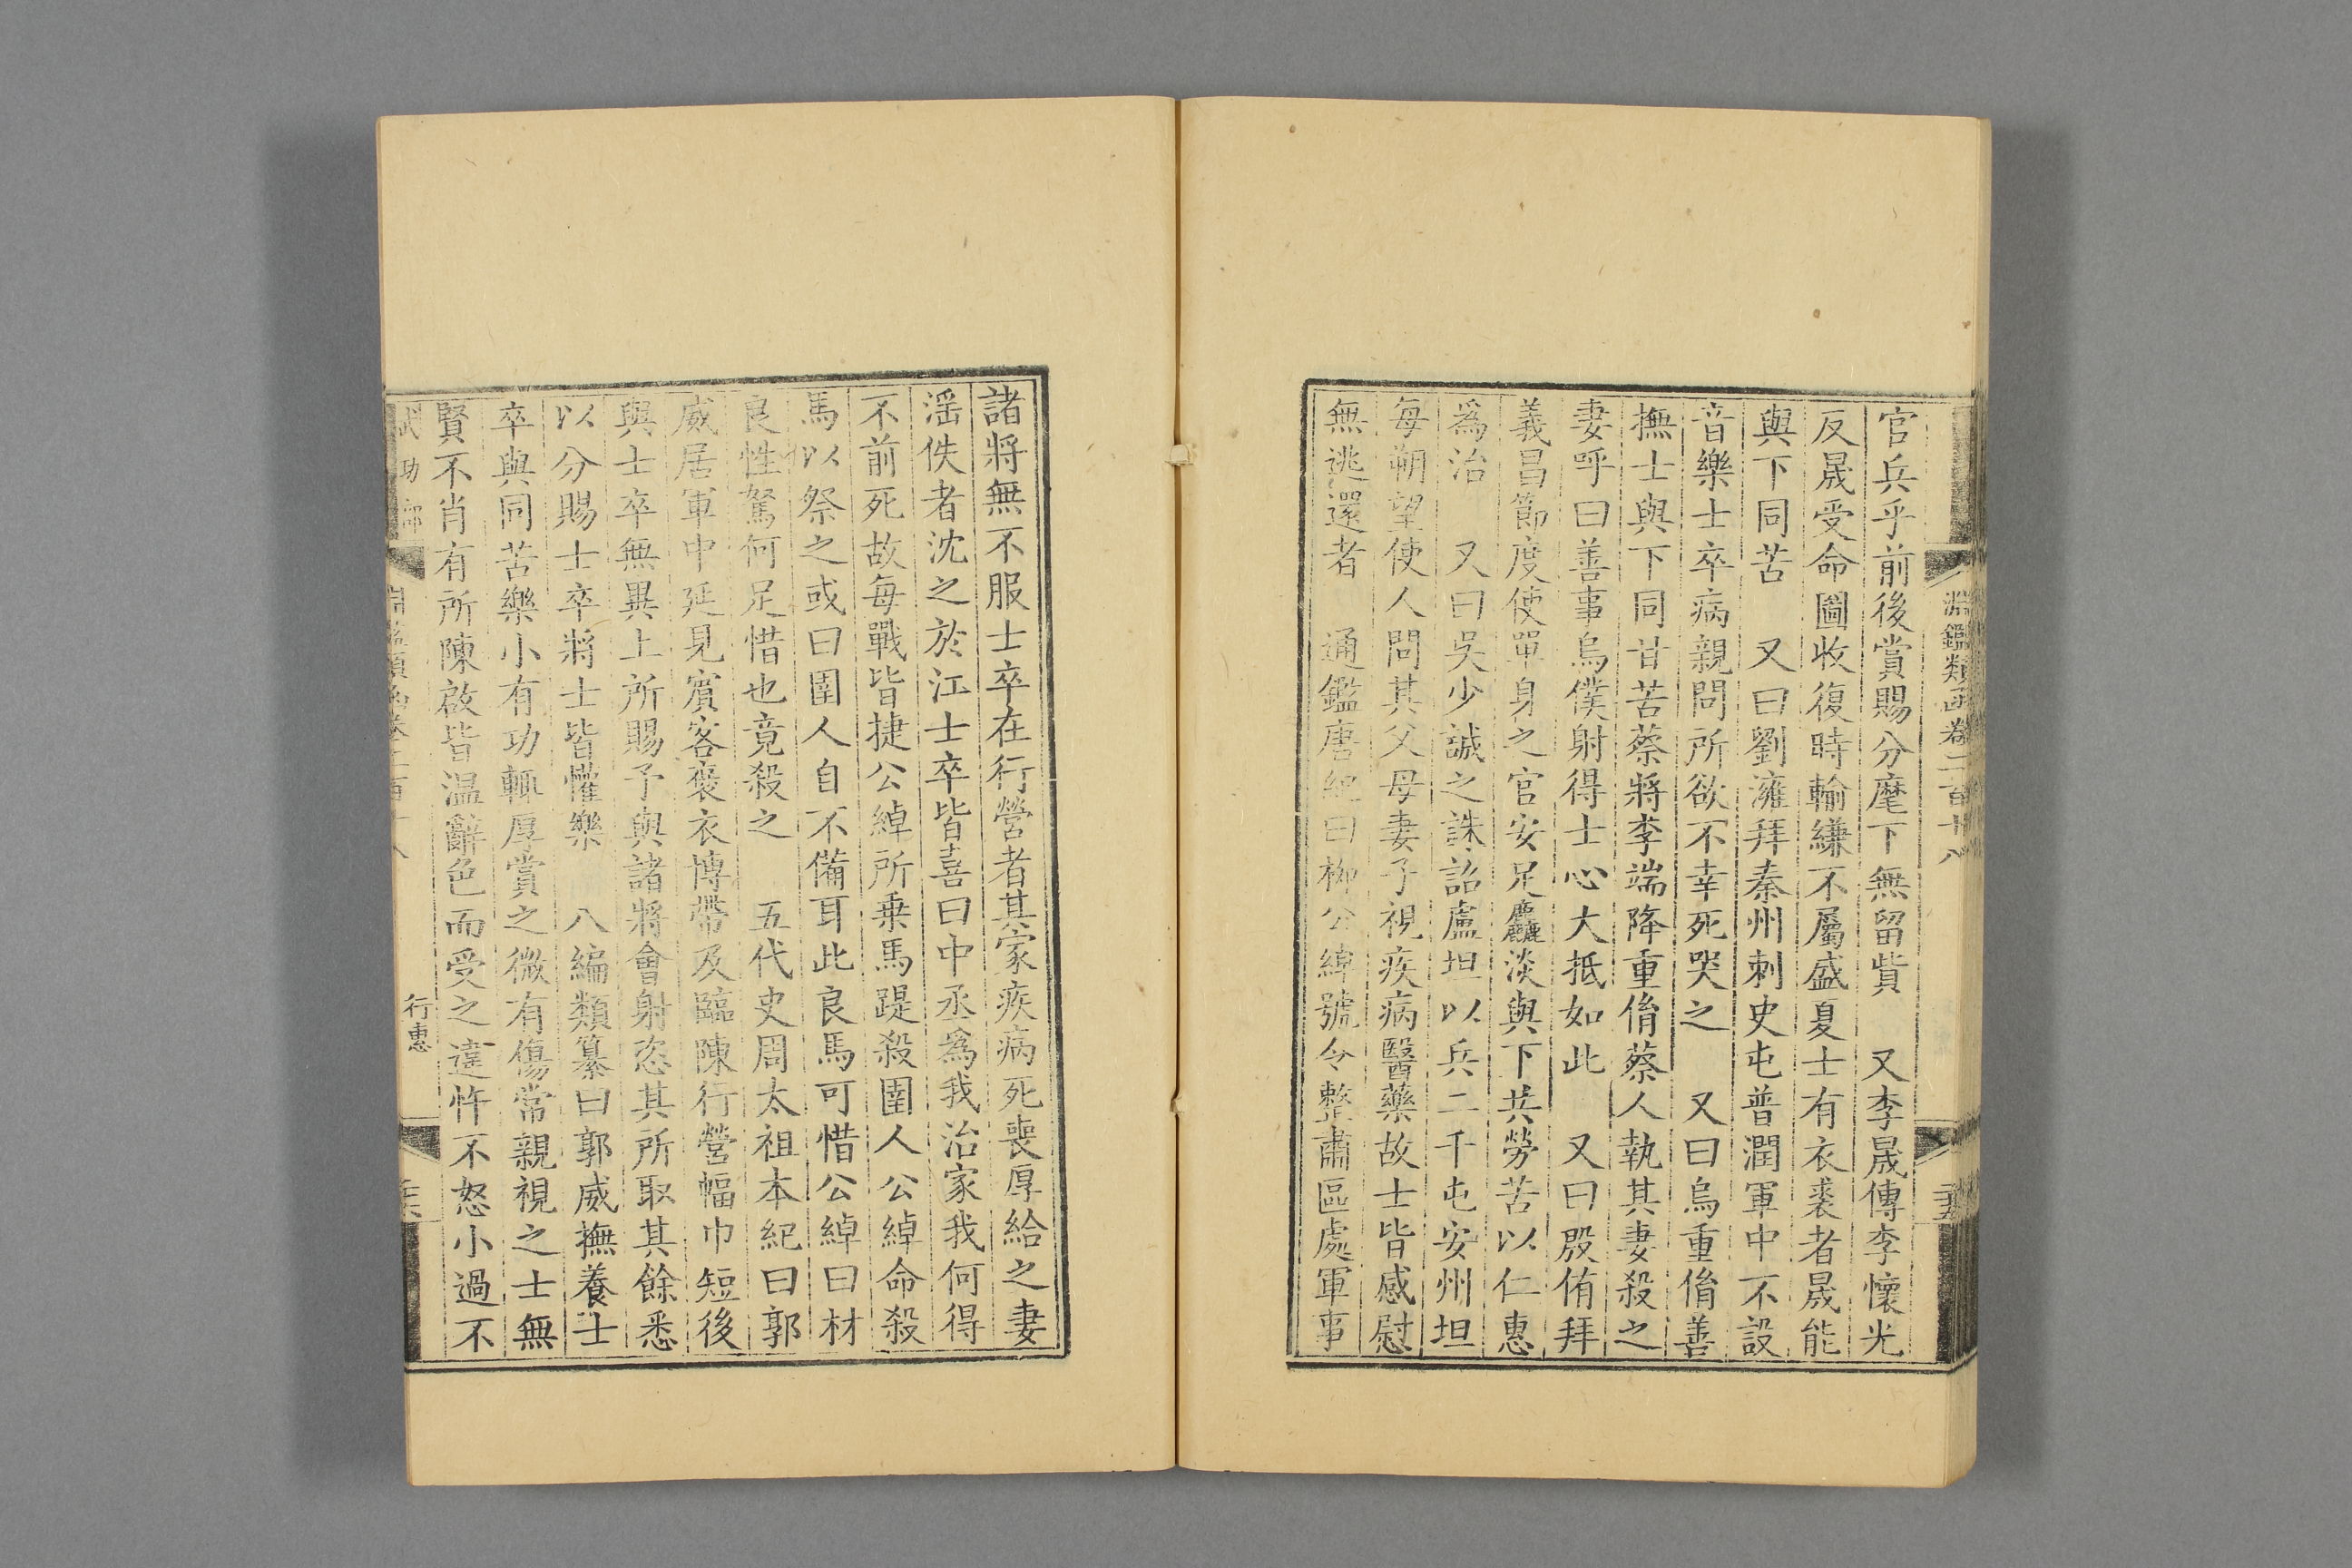 淵鑑類函卷二百十八
二十五
官兵乎前後賞賜分麾下無留貲　又李晟傳李懷光
反晟受命圖收復時輸縑不屬盛夏士有衣裘者晟能
與下同苦　又曰劉澭拜秦州刺史屯普潤軍中不設
音樂士卒病親問所欲不幸死哭之　又曰烏重脩善
撫士與下同甘苦蔡將李端降重脩蔡人執其妻殺之
妻呼曰善事烏僕射得士心大抵如此　又曰殷侑拜
義昌節度使單身之官安足麤淡與下共勞苦以仁惠
爲治　又曰吳少誠之誅詔盧坦以兵二千屯安州坦
每朔望使人問其父母妻子視疾病醫藥故士皆感慰
無逃還者　通鑑唐紀曰柳公綽號令整肅區處軍事
諸將無不服士卒在行營者其家疾病死喪厚給之妻
淫佚者沈之於江士卒皆喜曰中丞爲我治家我何得
不前死故每戰皆捷公綽所乗馬踶殺圉人公綽命殺
馬以祭之或曰圉人自不備耳此良馬可惜公綽曰材
良性駑何足惜也竟殺之　五代史周太祖本紀曰郭
威居軍中延見賓客褒衣博帶及臨陳行營幅巾短後
與士卒無異上所賜予與諸將會射恣其所取其餘悉
以分賜士卒將士皆懽樂　八編類纂曰郭威撫養士
卒與同苦樂小有功輒厚賞之微有傷常親視之士無
賢不肖有所陳啟皆温辭色而受之違忤不怒小過不
武功部
行惠